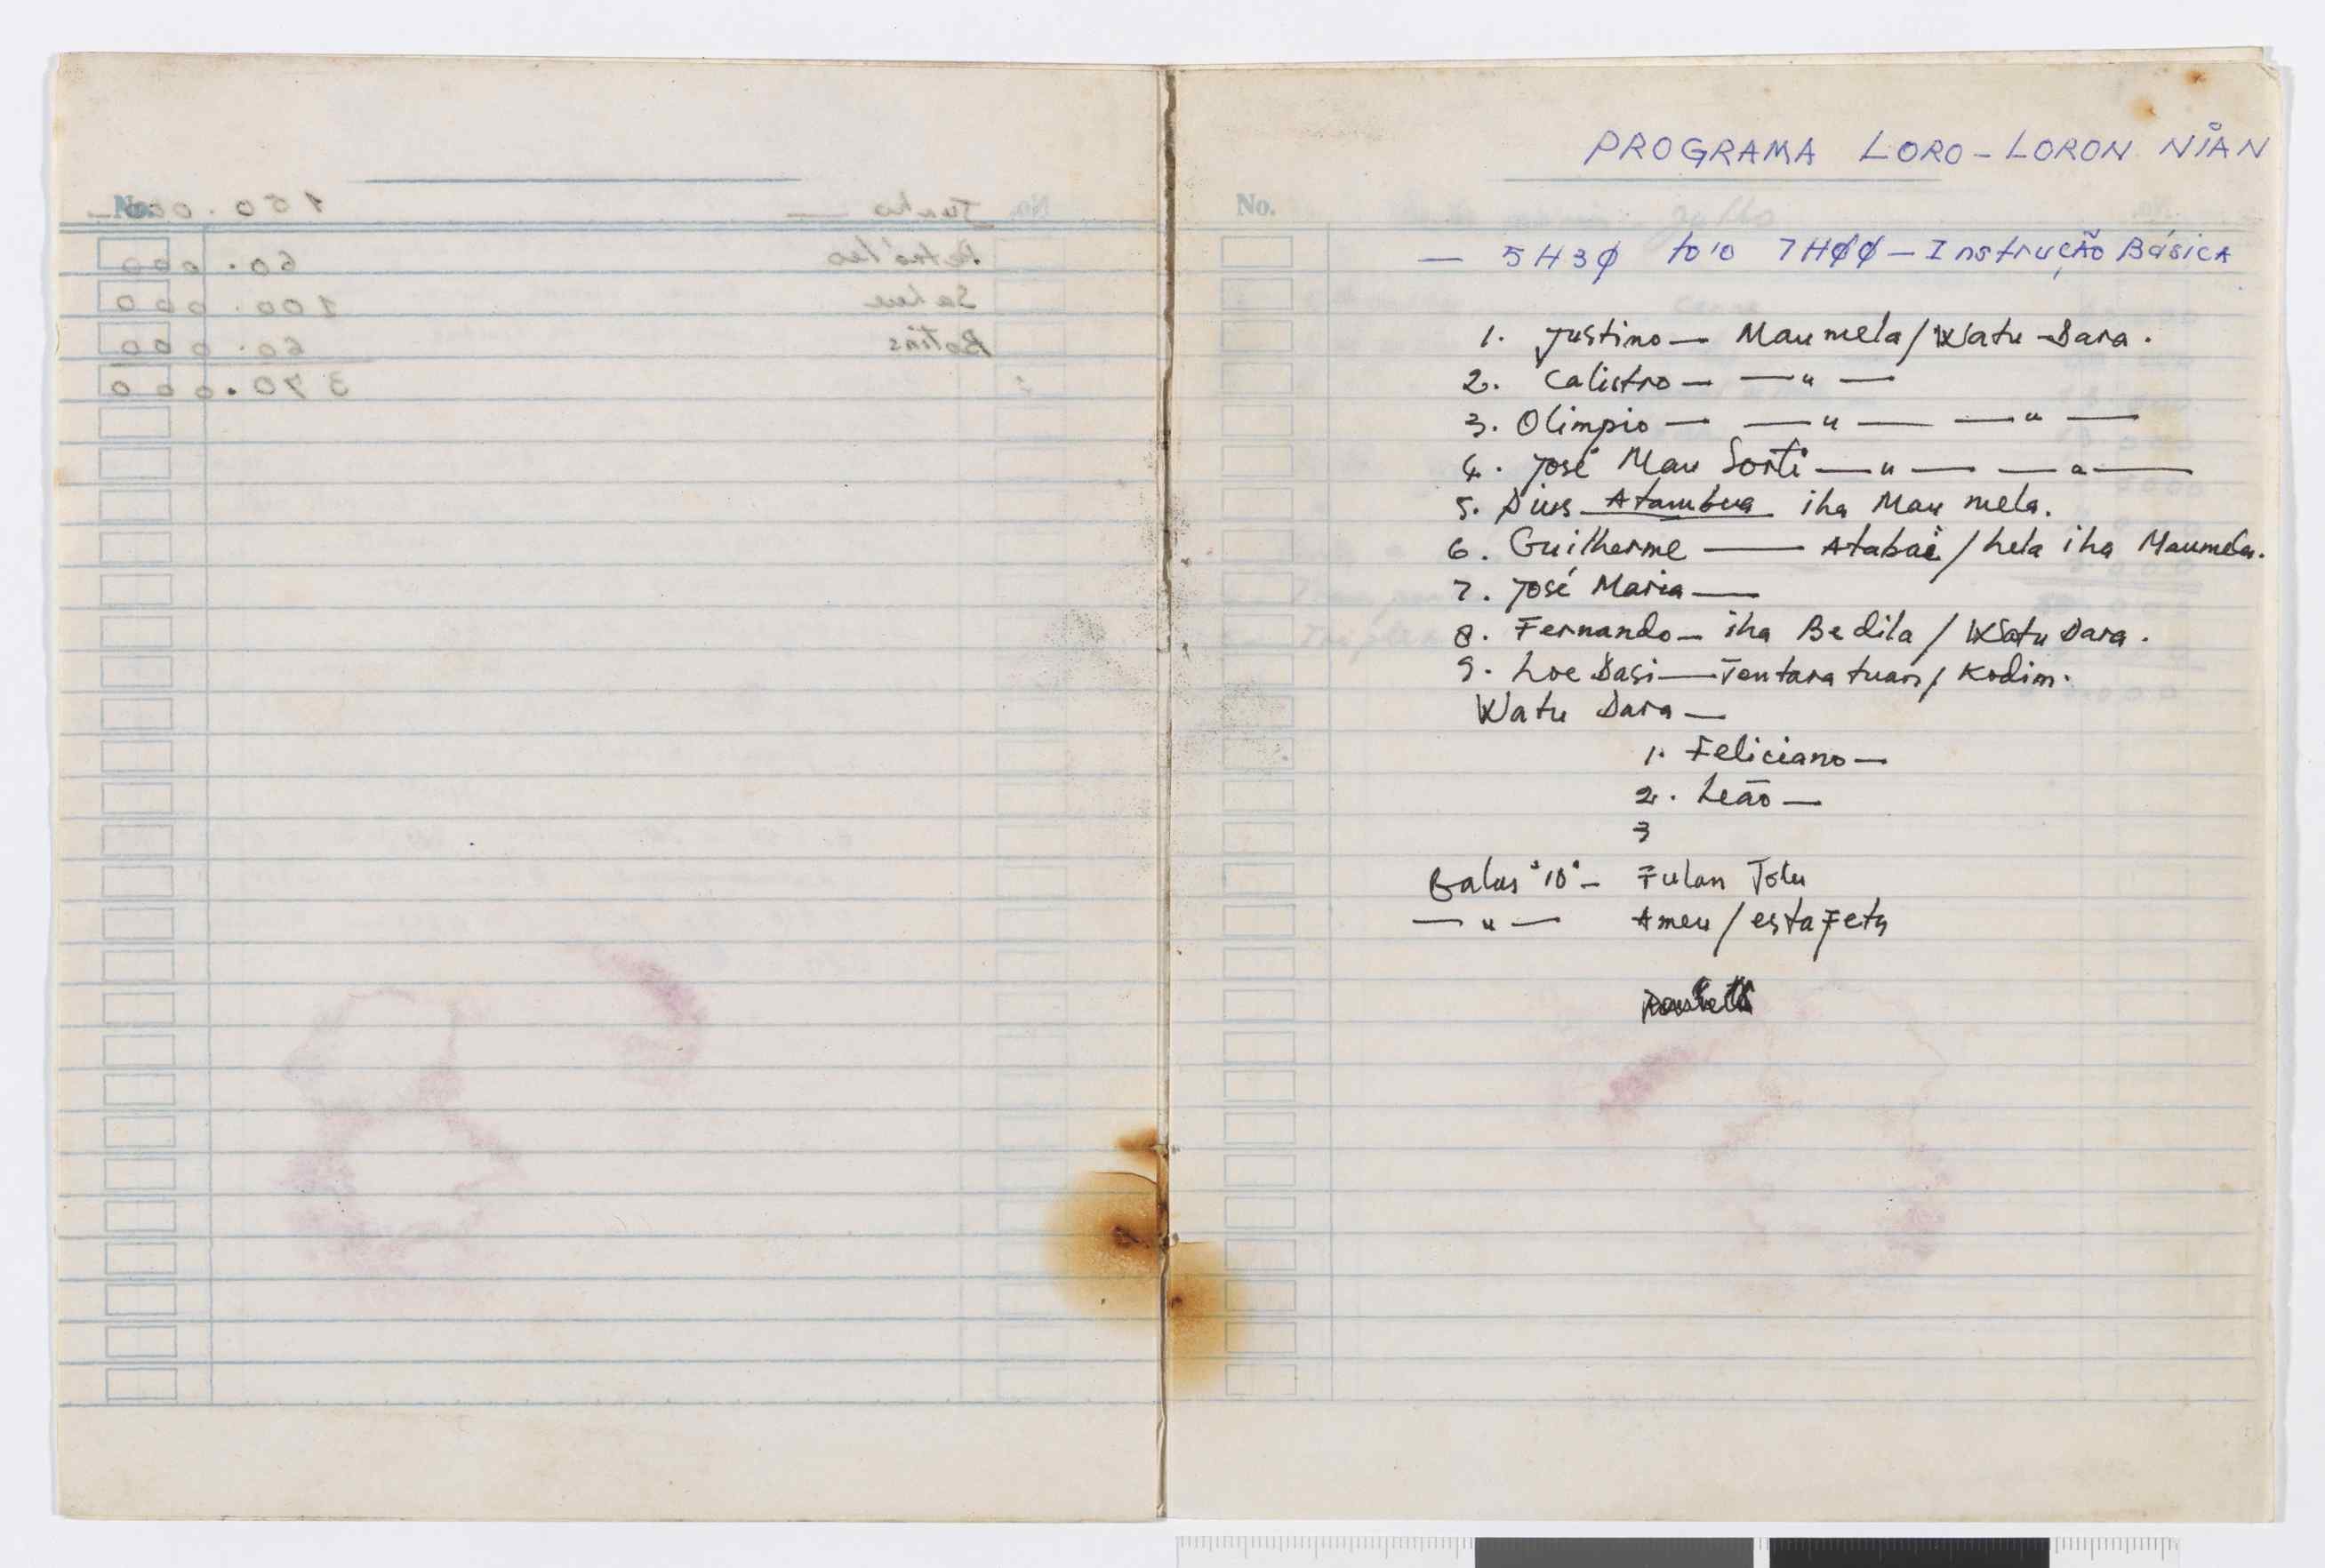 No.
Junho — 150.000
Petróleo 60.000
Sahe 100.000
Botins 60.000
370.000
PROGRAMA LORO-LORON NIAN
No.
— 5H30 to'o 7H00 — Instrução Básica
1. Justino — Maumela/Watu-Dara.
2. Calistro — — " —
3. Olimpio — — " — — " —
4. José Mau Sorti — " — — " —
5. Dius Atambua iha Mau mela.
6. Guilherme — Atabai / hela iha Maumela.
7. José Maria —
8. Fernando — iha Bedila / Watu Dara.
9. Loe Dasi — Tentara tuan / Kodim.
Watu Dara —
1. Feliciano —
2. Leão —
3
Balus "10" — Fulan Tolu
— " — Ameu / estafeta